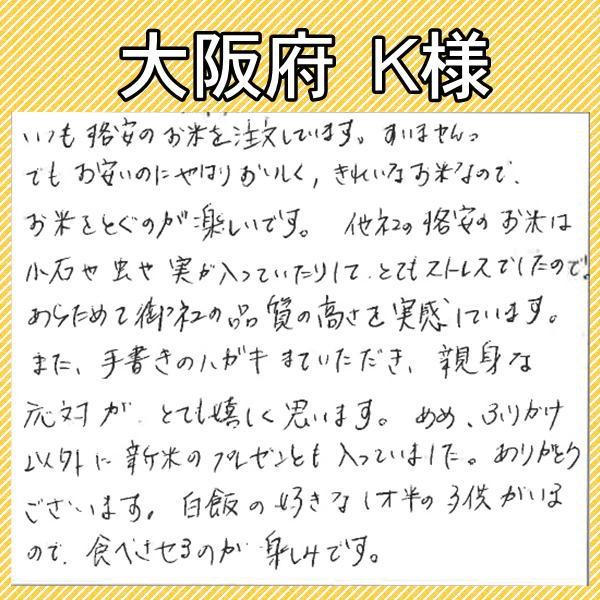 大阪府 K様
いつも格安のお米を注文しています。すいませんっ
でもお安いのにやはりおいしく,きれいなお米なので、
お米をとぐのが楽しいです。 他社の格安のお米は
小石や虫や実が入っていたりして、とてもストレスでしたので、
あらためて御社の品質の高さを実感しています。
また、手書きのハガキまでいただき、親身な
応対が、とても嬉しく思います。 あめ、ふりかけ
以外に新米のプレゼントも入っていました。ありがとう
ございます。 白飯の好きな1才半の子供がいる
ので、食べさせるのが楽しみです。